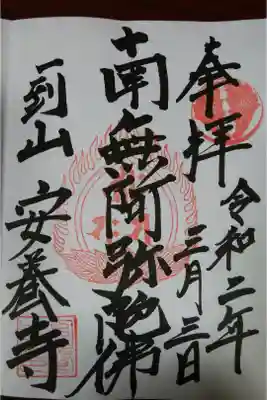 奉拝
令和二年
三月三日
南無阿弥陀佛
一到山
安養寺